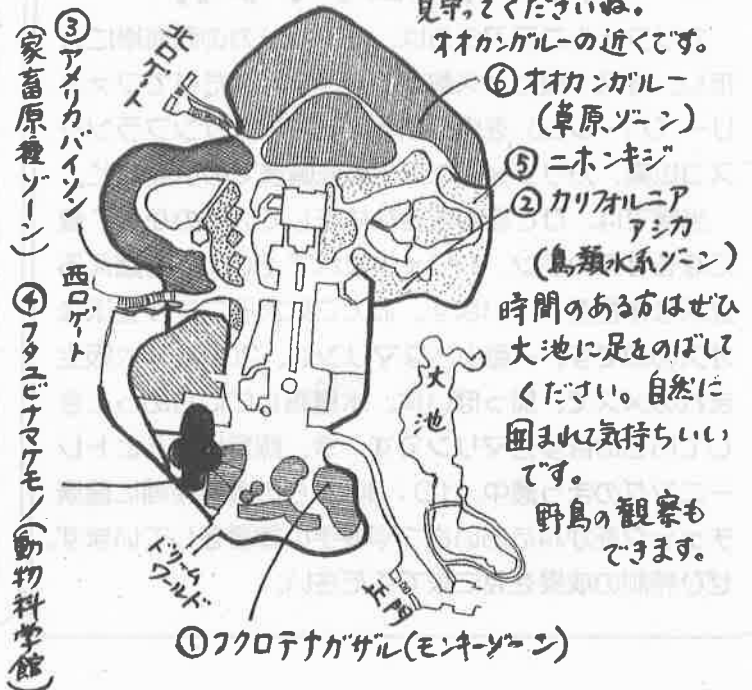 見守ってくださいね。
オオカンガルーの近くです。
⑥オオカンガルー
(草原ゾーン)
⑤ニホンキジ
②カリフォルニア
アシカ
(鳥類水系ゾーン)
時間のある方はぜひ
大池に足をのばして
ください。自然に
囲まれて気持ちいい
です。
野鳥の観察も
できます。
③アメリカバイソン
(家畜原種ゾーン)
④フタユビナマケモノ(動物科学館)
北口ゲート
西口ゲート
大池
ドリーム
ワールド
正門
①フクロテナガザル(モンキーゾーン)